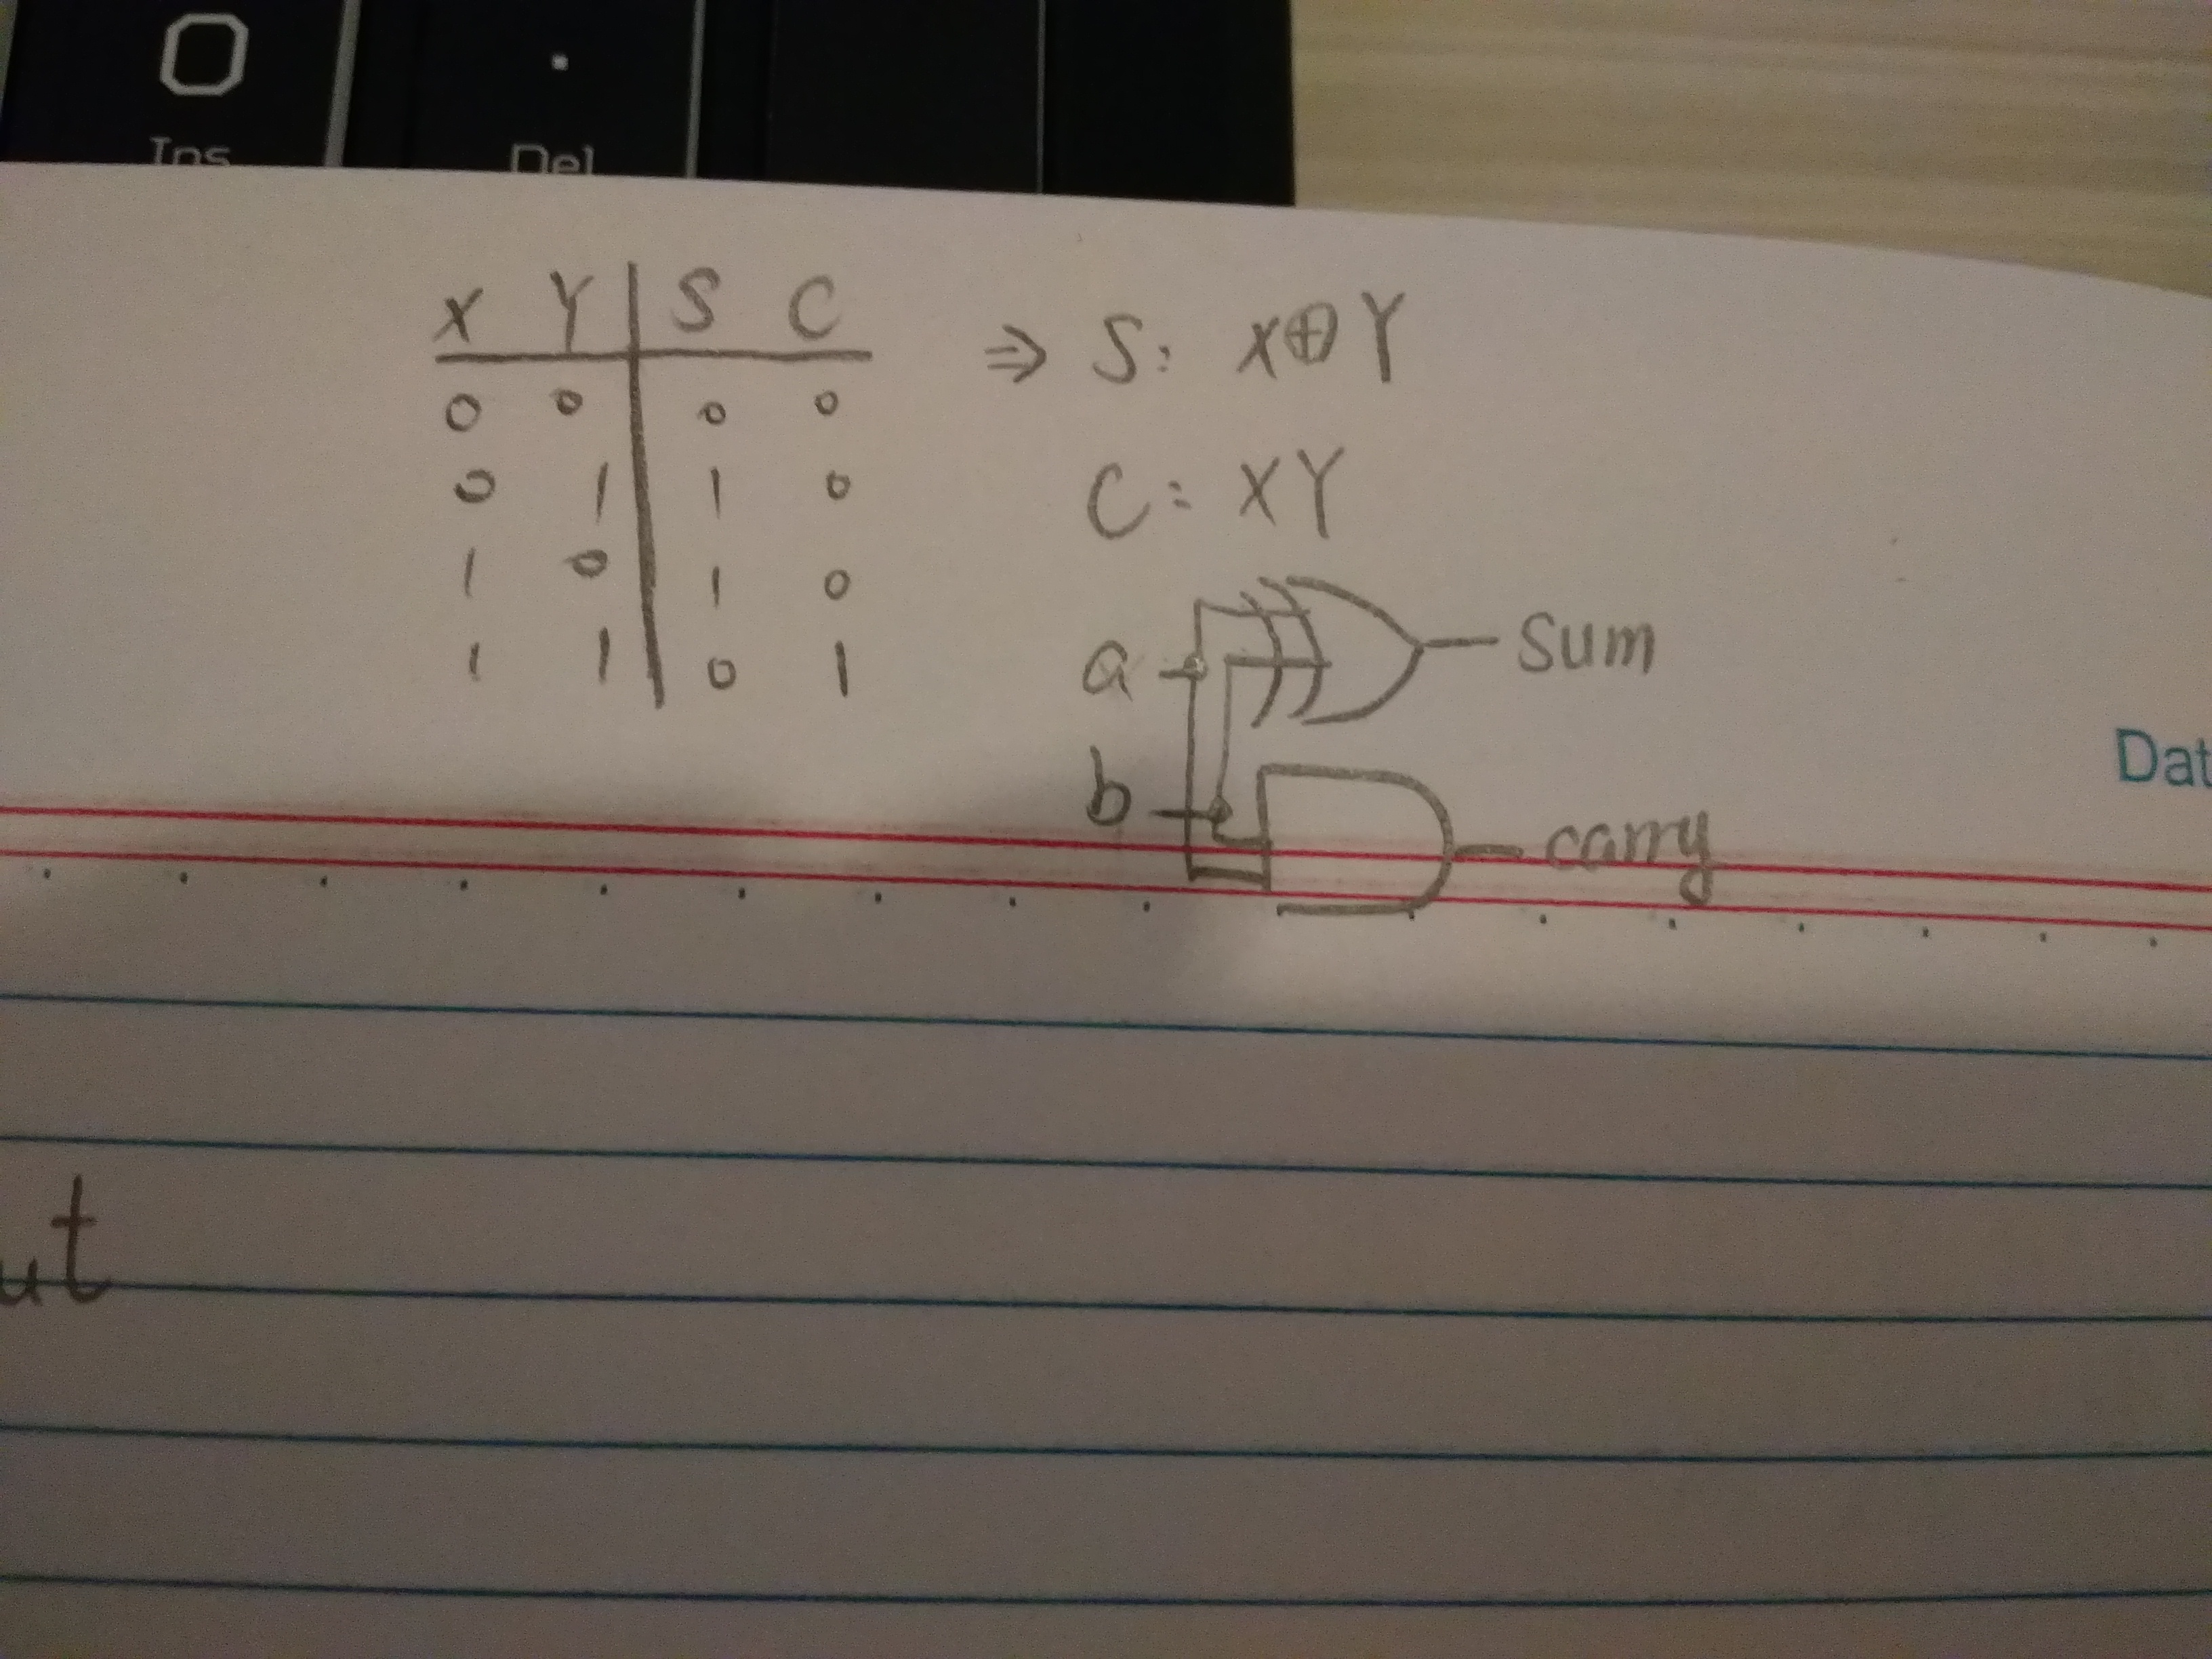 0 .
Ins Del
X Y S C
0 0 0 0
0 1 1 0
1 0 1 0
1 1 0 1
⇒ S: X⊕Y
C: XY
a
Sum
b
carry
Dat
ut